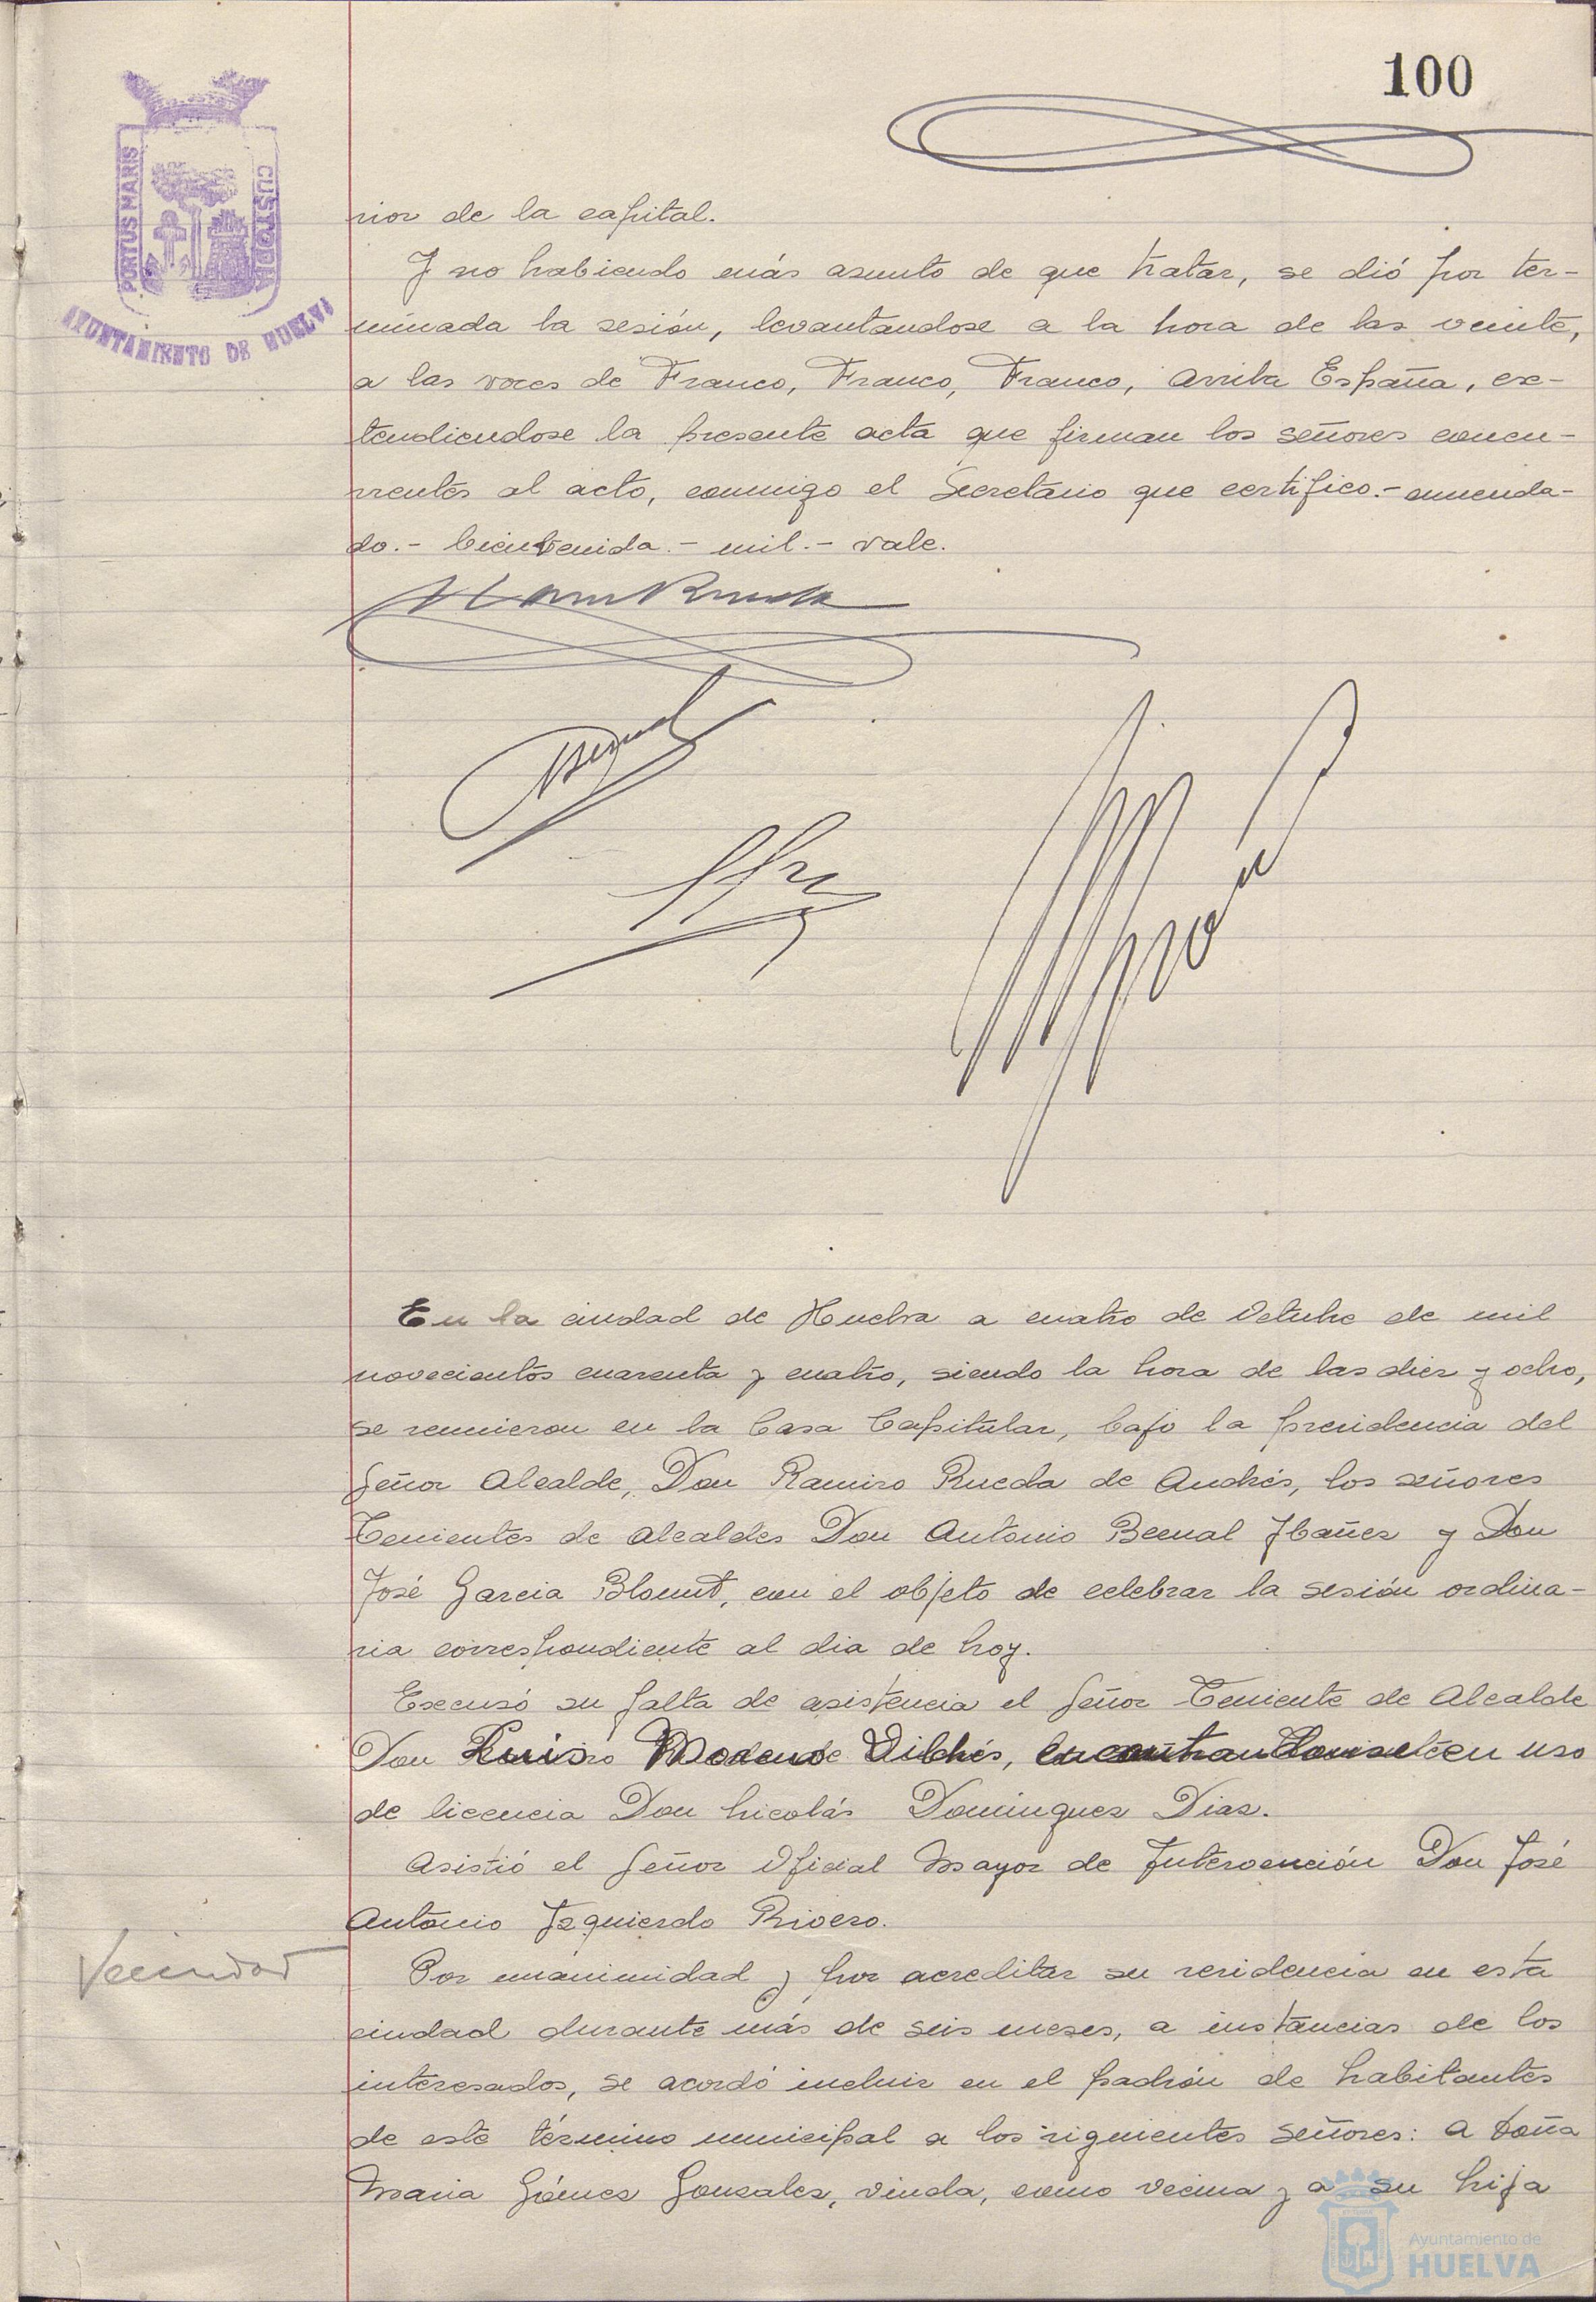 100
PORTUS MARIS
CUSTODIA
AYUNTAMIENTO DE HUELVA
rior de la capital.
Y no habiendo más asunto de que tratar, se dió por ter-
minada la sesión, levantandose a la hora de las veinte,
a las voces de Franco, Franco, Franco, Arriba España, ex-
tendiendose la presente acta que firman los señores concu-
rrentes al acto, conmigo el Secretario que certifico.- enmenda-
do.- bienvenida.- mil.- vale.
En la ciudad de Huelva a cuatro de Octubre de mil
novecientos cuarenta y cuatro, siendo la hora de las diez y ocho,
se reunieron en la Casa Capitular, bajo la presidencia del
Señor Alcalde, Don Ramiro Rueda de Andrés, los señores
Tenientes de Alcaldes Don Antonio Bernal Ibañez y Don
José Garcia Blount, con el objeto de celebrar la sesión ordina-
ria correspondiente al dia de hoy.
Excusó su falta de asistencia el Señor Teniente de Alcalde
Don Vilchés, en uso
de licencia Don Nicolás Dominguez Diaz.
Asistió el Señor Oficial Mayor de Intervención Don José
Antonio Izquierdo Rivero.
Vecindad
Por unanimidad y por acreditar su residencia en esta
ciudad durante más de seis meses, a instancias de los
interesados, se acordó incluir en el padrón de habitantes
de este término municipal a los siguientes señores: a Doña
Maria Gómez Gonzalez, viuda, como vecina y a su hija
Ayuntamiento de
HUELVA